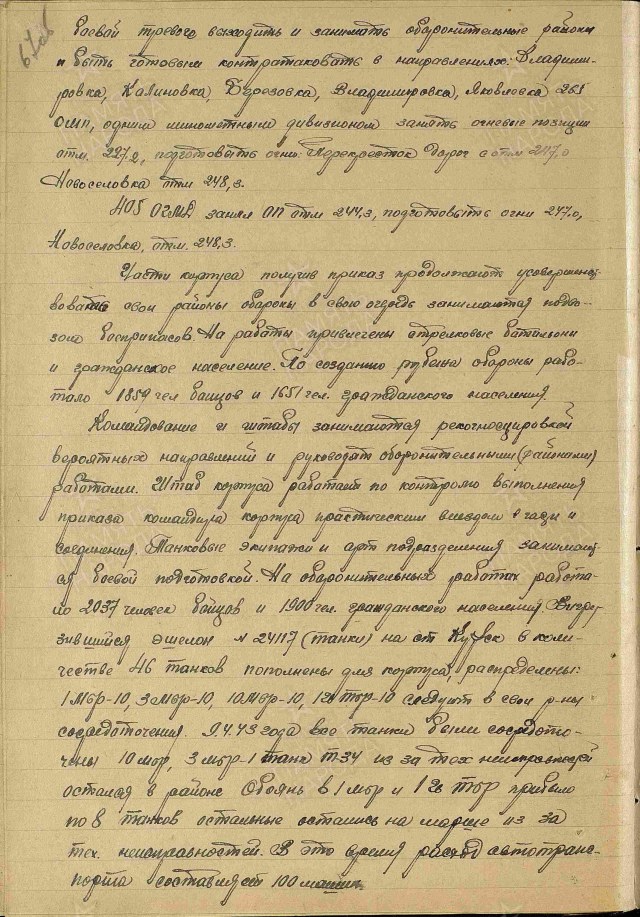 боевой тревоге выходить и занимать оборонительные районы
и быть готовым контратаковать в направлениях: Владими-
ровка, Калиновка, Березовка, Владимировка, Яковлевка 265
ОМП, одним минометным дивизионом занять огневые позиции
отм. 227,2, подготовить огни: Перекресток дорог с отм 247,0
Новоселовка отм 248,3.
405 ОГМД занял ОП отм 244,3, подготовить огни 247,0,
Новоселовка, отм. 248,3.
Части корпуса получив приказ продолжают усовершенст-
вовать свои районы обороны в свою очередь занимаются подво-
зом боеприпасов. На работы привлечены стрелковые батальоны
и гражданское население. По созданию рубежа обороны рабо-
тало 1859 чел бойцов и 1651 чел. гражданского населения.
Командование и штабы занимаются рекогносцировкой
вероятных направлений и руководят оборонительными
работами. Штаб корпуса работает по контролю выполнения
приказа командира корпуса практическим выездом в части и
соединения. Танковые экипажи и арт подразделения занимают-
ся боевой подготовкой. На оборонительных работах работа-
ло 2037 человек бойцов и 1900 чел. гражданского населения. Выгру-
зившийся эшелон № 24117 (танки) на ст Курск в коли-
честве 46 танков пополнены для корпуса, распределены:
1 Мбр-10, 3 Мбр-10, 10 Мбр-10, 12 тбр-10 следует в свои р-ны
сосредоточения. 9.4.43 года все танки были сосредото-
чены 10 мбр, 3 мбр-1 танк Т34 из за тех неисправностей
остался в районе Обоянь в 1 мбр и 12 тбр прибыло
по 8 танков остальные остались на марше из за
тех. неисправностей. В это время расход автотранс-
порта составляет 100 машин.